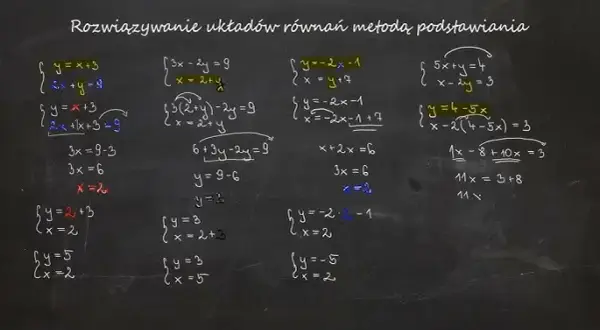 Rozwiązywanie układów równań metodą podstawiania
y = x+3
2x + y = 9
y = x+3
2x + x+3 = 9
3x = 9-3
3x = 6
x = 2
y = 2+3
x = 2
y = 5
x = 2
3x - 2y = 9
x = 2+y
3(2+y)-2y = 9
x = 2+y
6+3y-2y = 9
y = 9-6
y = 3
y = 3
x = 2+3
y = 3
x = 5
y = -2x-1
x = y+7
y = -2x-1
x = -2x-1+7
x+2x = 6
3x = 6
x = 2
y = -2·2-1
x = 2
y = -5
x = 2
5x+y = 4
x - 2y = 3
y = 4-5x
x-2(4-5x) = 3
1x - 8 + 10x = 3
11x = 3+8
11x